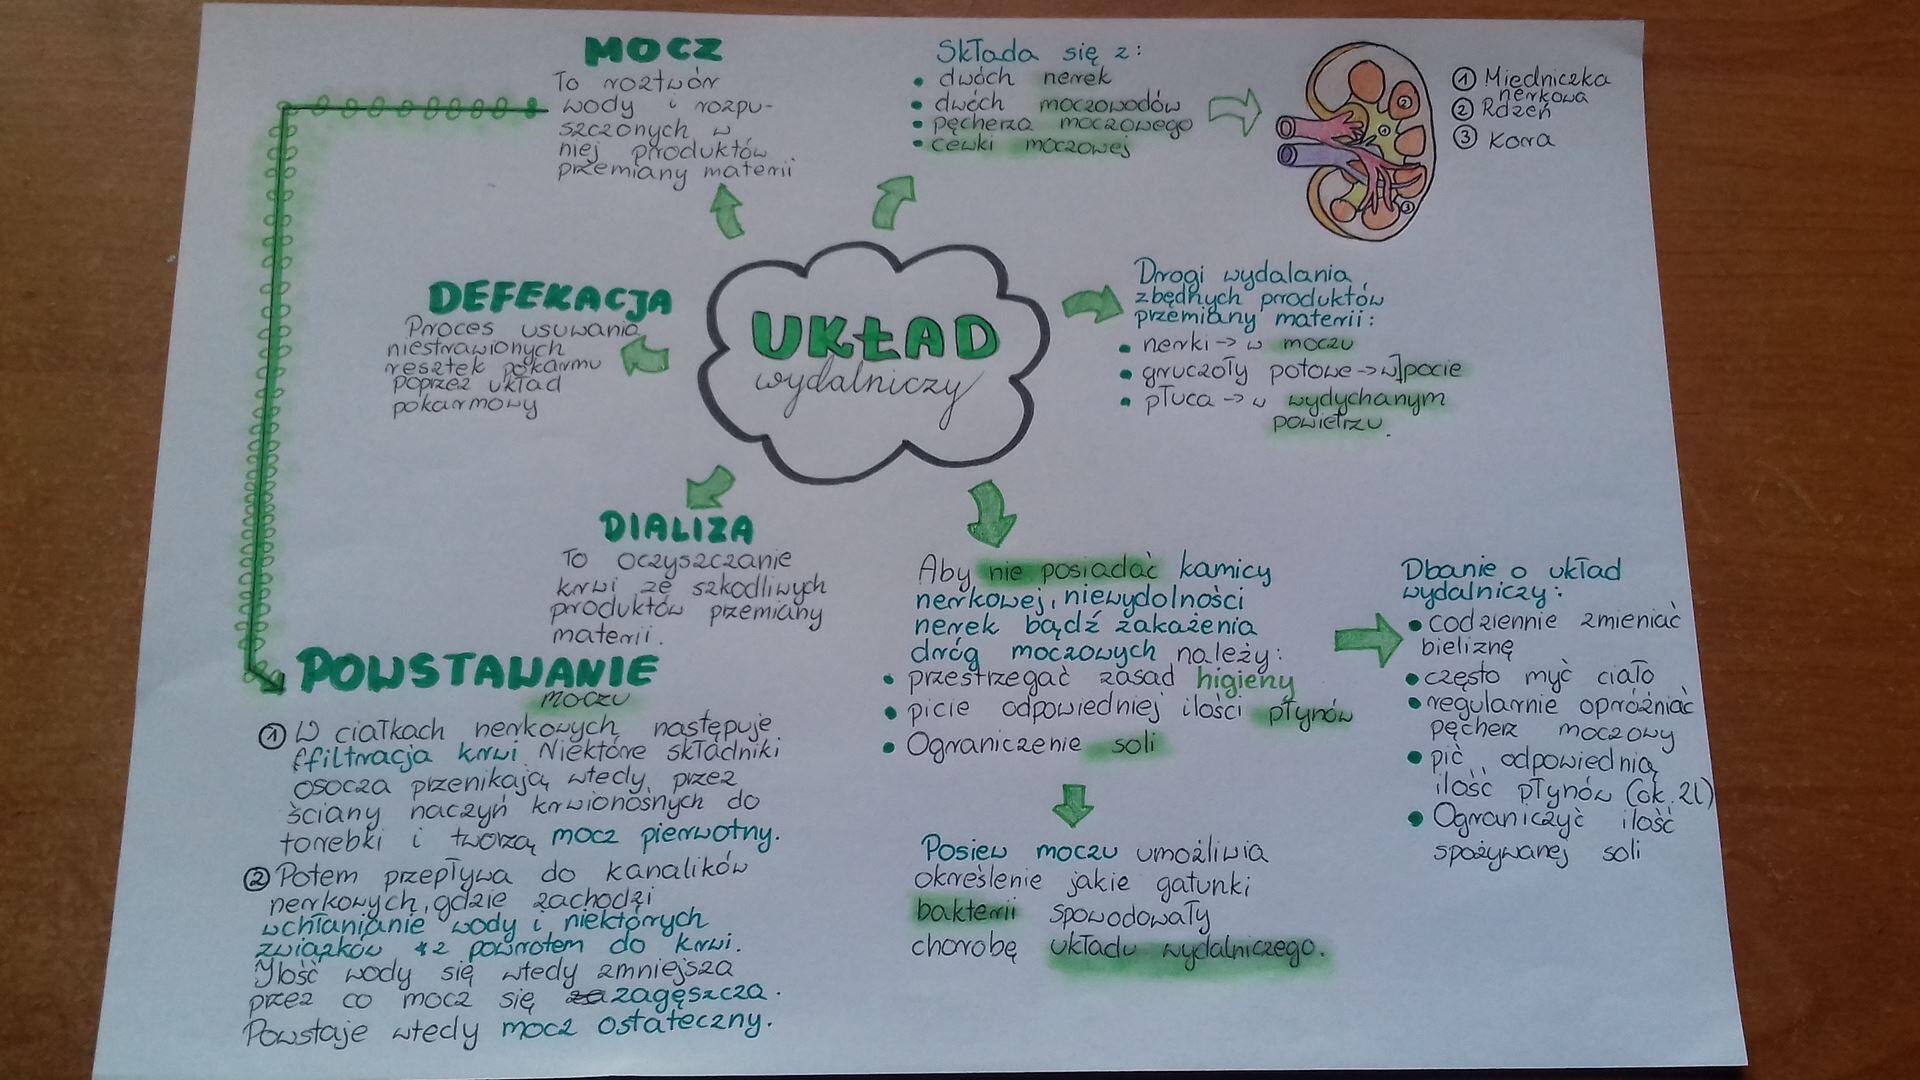 UKŁAD
wydalniczy
MOCZ
To roztwór
wody i rozpu-
szczonych w
niej produktów
przemiany materii
Składa się z:
• dwóch nerek
• dwóch moczowodów
• pęcherza moczowego
• cewki moczowej
① Miedniczka
nerkowa
② Rdzeń
③ Kora
①
②
③
DEFEKACJA
Proces usuwania
niestrawionych
resztek pokarmu
poprzez układ
pokarmowy
Drogi wydalania
zbędnych produktów
przemiany materii:
• nerki -> w moczu
• gruczoły potowe -> w pocie
• płuca -> w wydychanym
powietrzu.
DIALIZA
To oczyszczanie
krwi ze szkodliwych
produktów przemiany
materii.
POWSTAWANIE
moczu
① W ciałkach nerkowych następuje
filtracja krwi. Niektóre składniki
osocza przenikają wtedy przez
ściany naczyń krwionośnych do
torebki i tworzą mocz pierwotny.
② Potem przepływa do kanalików
nerkowych, gdzie zachodzi
wchłanianie wody i niektórych
związków z powrotem do krwi.
Ylość wody się wtedy zmniejsza
przez co mocz się zagęszcza.
Powstaje wtedy mocz ostateczny.
Aby nie posiadać kamicy
nerkowej, niewydolności
nerek bądź zakażenia
dróg moczowych należy:
• przestrzegać zasad higieny
• picie odpowiedniej ilości płynów
• Ograniczenie soli
Posiew moczu umożliwia
określenie jakie gatunki
bakterii spowodowały
chorobę układu wydalniczego.
Dbanie o układ
wydalniczy:
• codziennie zmieniać
bieliznę
• często myć ciało
• regularnie opróżniać
pęcherz moczowy
• pić odpowiednią
ilość płynów (ok. 2l)
• Ograniczyć ilość
spożywanej soli